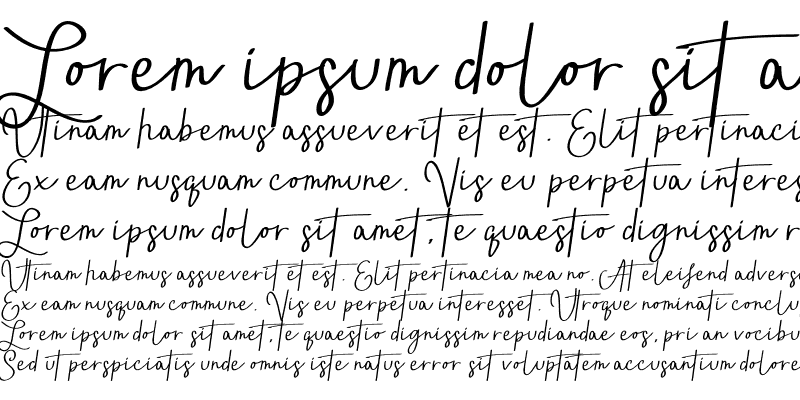 Lorem ipsum dolor sit a
Utinam habemus assueverit et est. Elit pertinaci
Ex eam nusquam commune. Vis eu perpetua interes
Lorem ipsum dolor sit amet, te quaestio dignissim r
Utinam habemus assueverit et est. Elit pertinacia mea no. At eleifend advers
Ex eam nusquam commune. Vis eu perpetua interesset. Utroque nominati conclu
Lorem ipsum dolor sit amet, te quaestio dignissim repudiandae eos, pri an vocibu
Sed ut perspiciatis unde omnis iste natus error sit voluptatem accusantium dolore